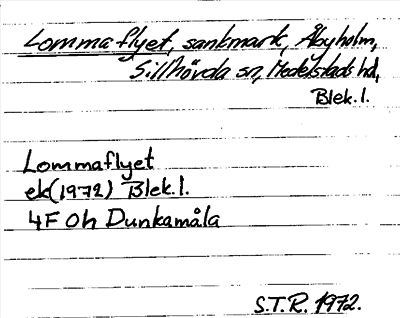 Lommaflyet, sankmark, Åbyholm,
Sillhövda sn, Medelstads hd,
Blek. l.
Lommaflyet
ek(1972) Blek. l.
4F 0h Dunkamåla
S.T.R. 1972.